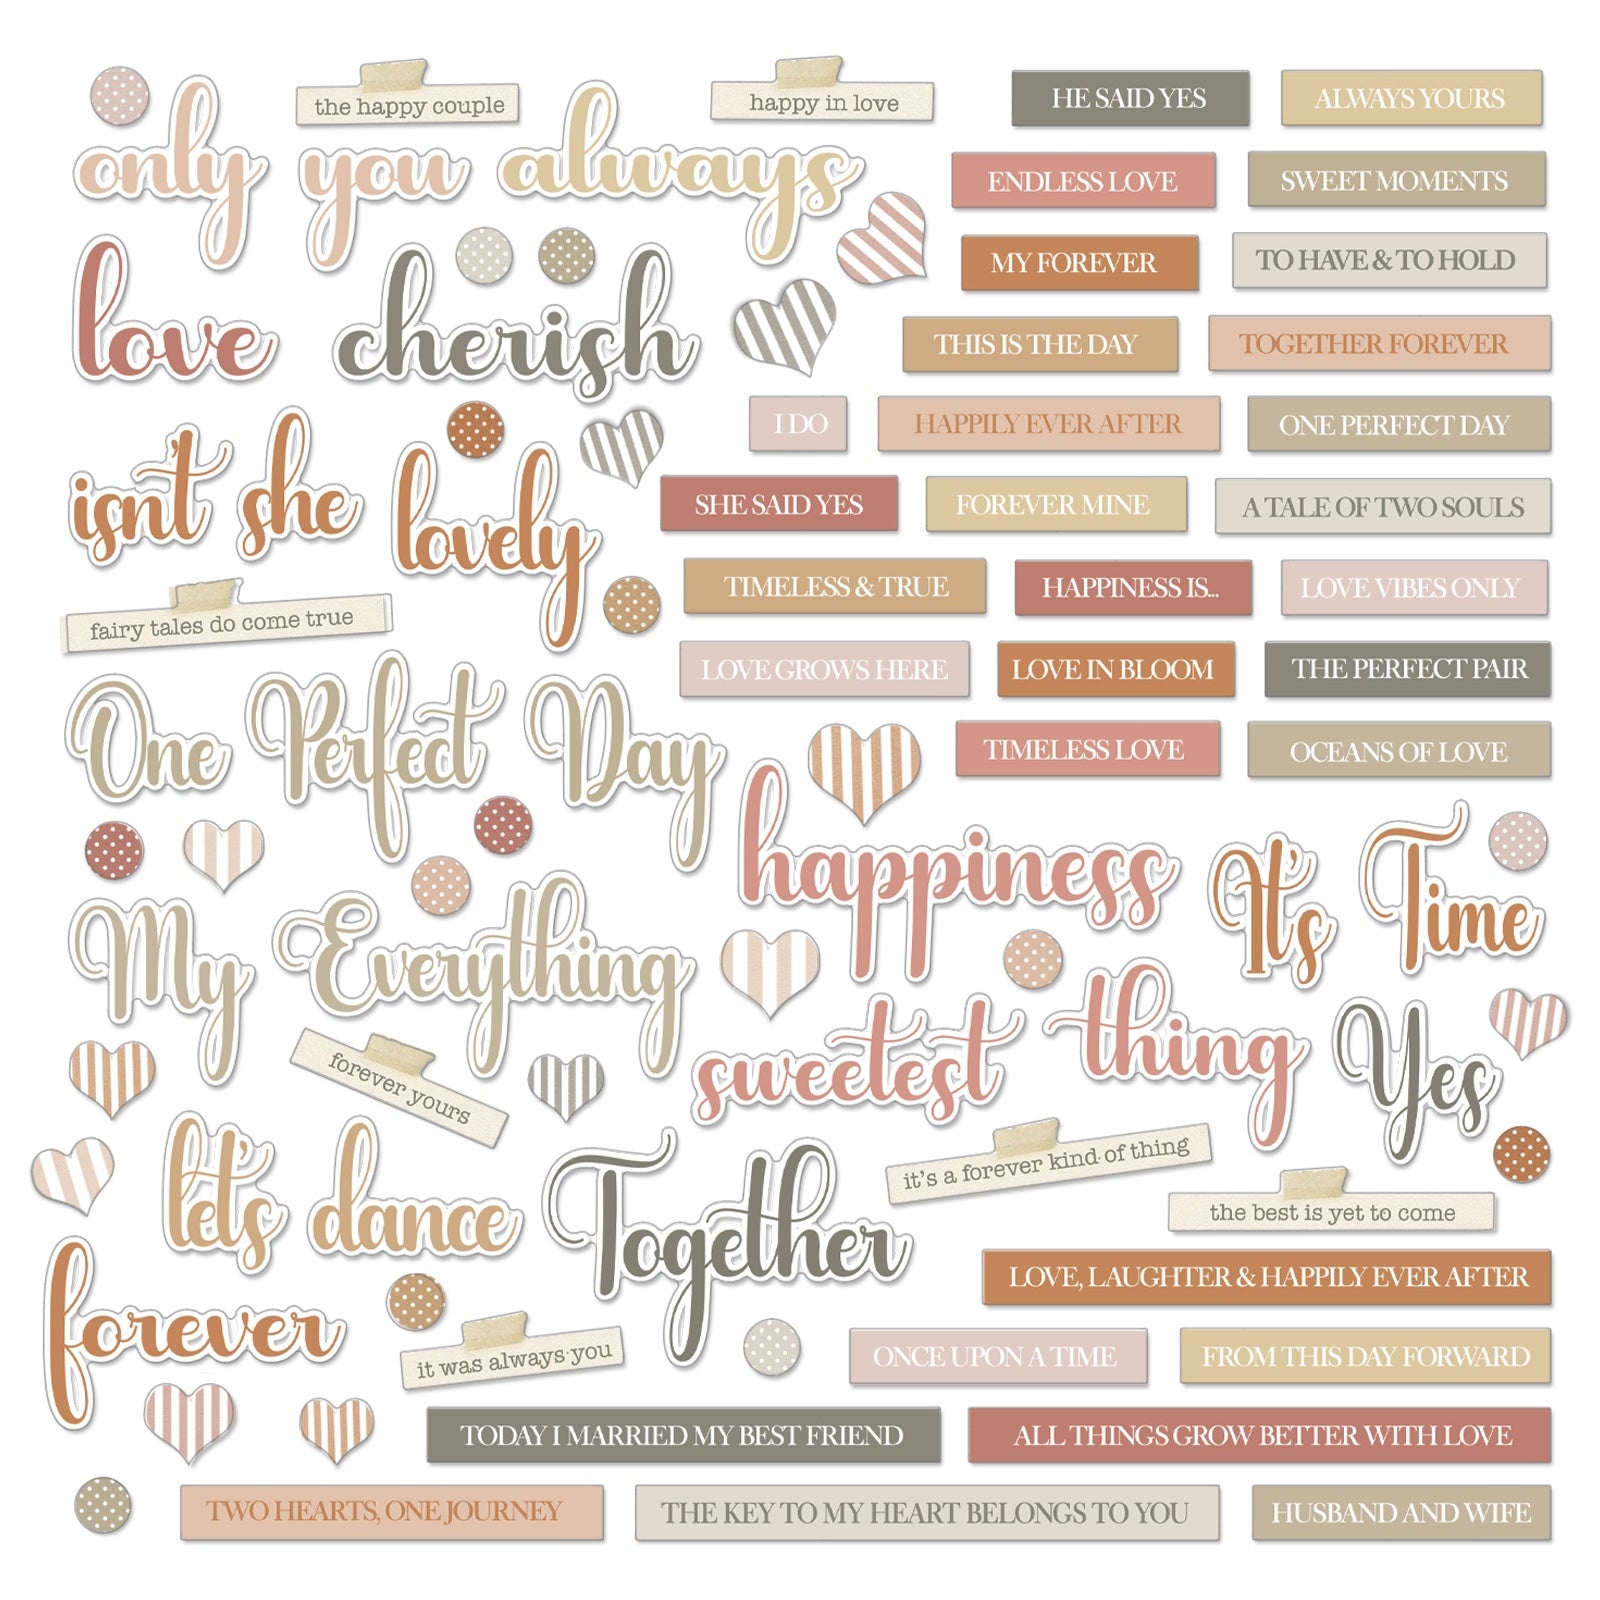 the happy couple
happy in love
HE SAID YES
ALWAYS YOURS
only you always
ENDLESS LOVE
SWEET MOMENTS
MY FOREVER
TO HAVE & TO HOLD
love cherish
THIS IS THE DAY
TOGETHER FOREVER
I DO
HAPPILY EVER AFTER
ONE PERFECT DAY
isn't she lovely
SHE SAID YES
FOREVER MINE
A TALE OF TWO SOULS
TIMELESS & TRUE
HAPPINESS IS...
LOVE VIBES ONLY
fairy tales do come true
LOVE GROWS HERE
LOVE IN BLOOM
THE PERFECT PAIR
One Perfect Day
TIMELESS LOVE
OCEANS OF LOVE
happiness
It's Time
My Everything
sweetest thing
Yes
forever yours
let's dance
Together
it's a forever kind of thing
the best is yet to come
LOVE, LAUGHTER & HAPPILY EVER AFTER
forever
it was always you
ONCE UPON A TIME
FROM THIS DAY FORWARD
TODAY I MARRIED MY BEST FRIEND
ALL THINGS GROW BETTER WITH LOVE
TWO HEARTS, ONE JOURNEY
THE KEY TO MY HEART BELONGS TO YOU
HUSBAND AND WIFE